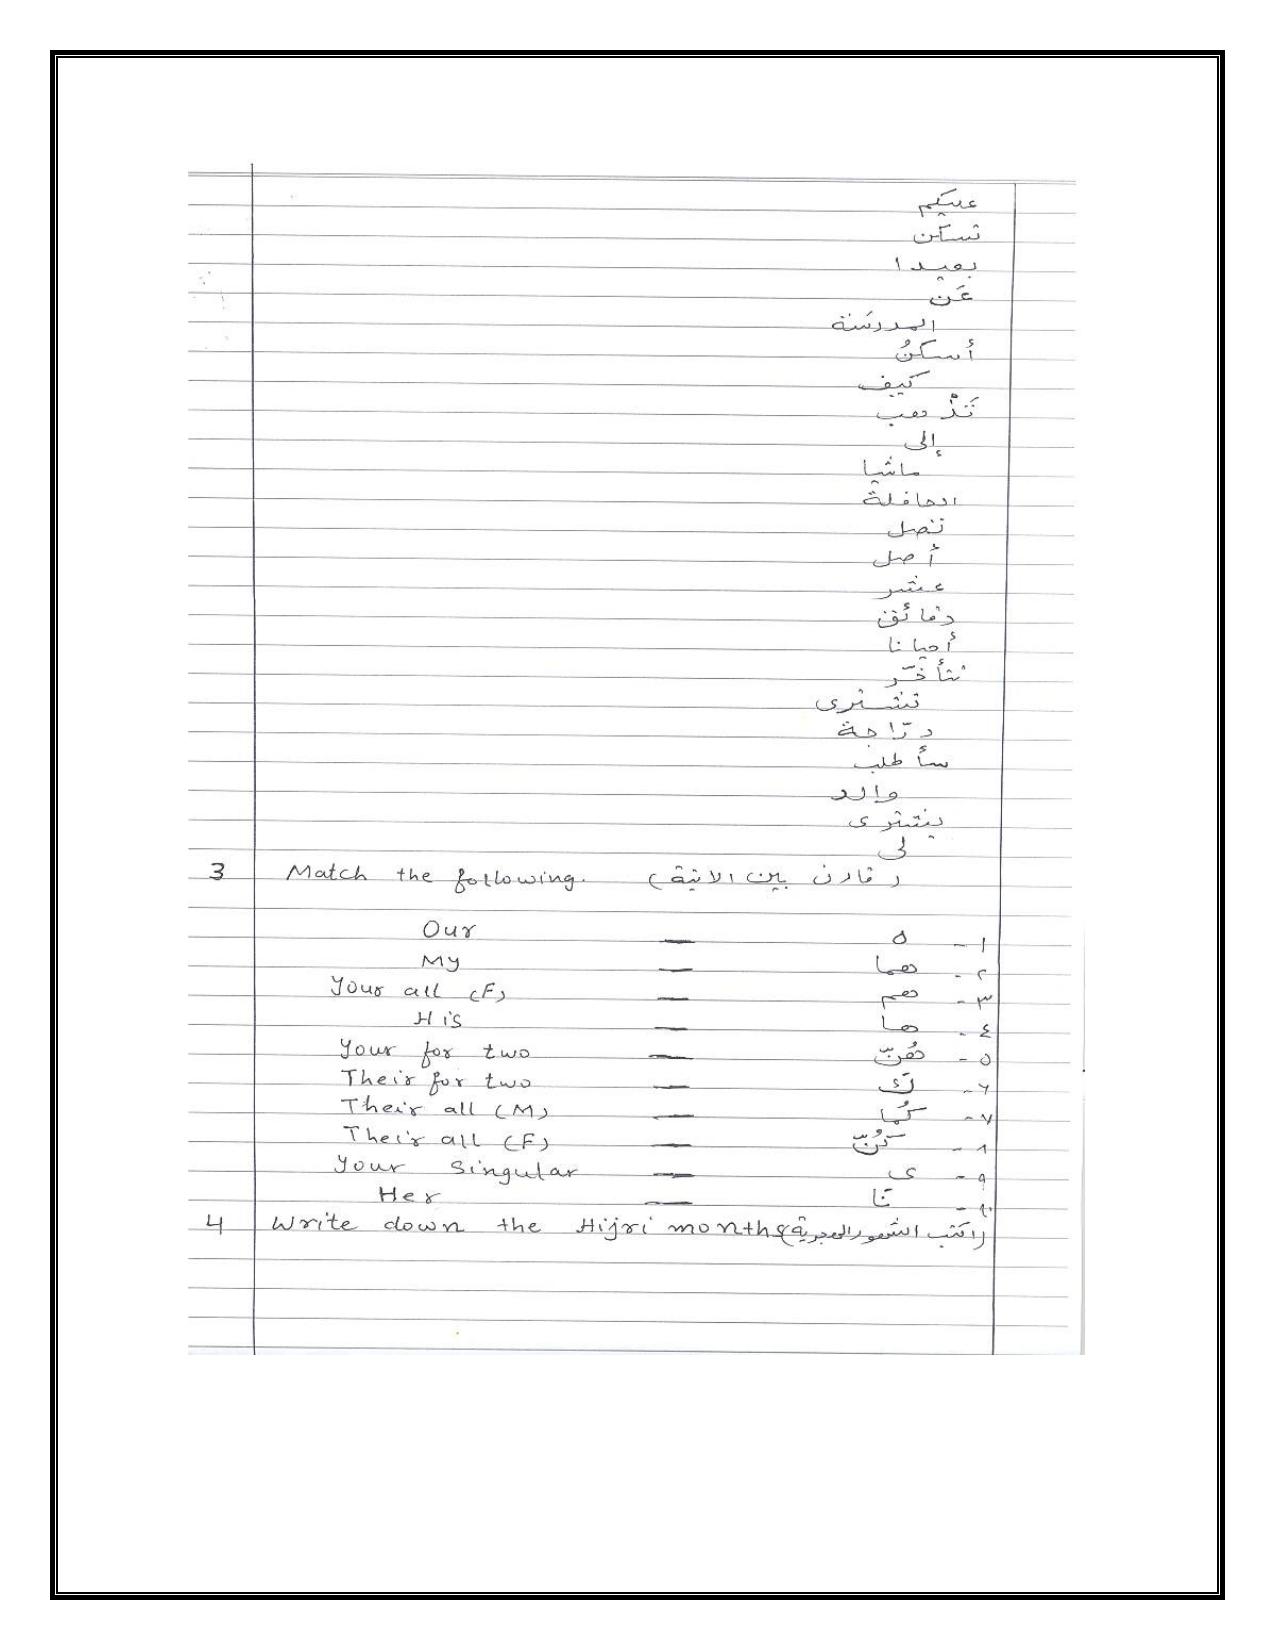 عليكم
تسكن
بعيدا
عَن
المدرسَة
أسكنُ
كيف
تَذْهب
إلى
ماشيا
الحافلة
تصل
أصل
عشر
دقائق
أحيانا
تتأخّر
تشترى
درّاجة
سأطلب
والد
يشترى
لى
3 Match the following. (قارن بين الاتية)
Our — ه -١
My — هما -٢
Your all (F) — هم -٣
His — ها -٤
Your for two — هُنّ -٥
Their for two — كَ -٦
Their all (M) — كُما -٧
Their all (F) — كُنّ -٨
Your Singular — ى -٩
Her — نَا -١٠
4 Write down the Hijri months (اكتب الشهور الهجرية)